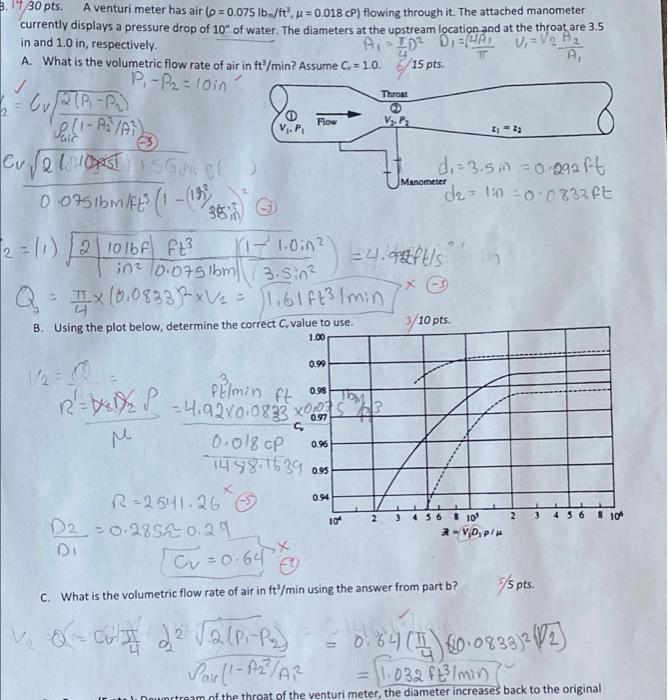 3. 14/30 pts. A venturi meter has air (ρ = 0.075 lbm/ft³, μ = 0.018 cP) flowing through it. The attached manometer
currently displays a pressure drop of 10" of water. The diameters at the upstream location and at the throat are 3.5
in and 1.0 in, respectively.
A₁ = π/4 D² D₁ = √4A₁/π V₁ = V₂ A₂/A₁
A. What is the volumetric flow rate of air in ft³/min? Assume Cv = 1.0. 6/15 pts.
P₁ - P₂ = 10in
= Cv √2(P₁ - P₂) / ρair(1 - A₂²/A₁²) (-3)
Throat
① V₁, P₁ Flow ② V₂, P₂ z₁ = z₂
Manometer
d₁ = 3.5in = 0.292ft
d₂ = 1in = 0.0833ft
0.075 lbm/ft³ (-3)
2 = (1) √2 | 10 lbf | ft³ | (1 - 1.0in²) / in² | 0.075 lbm | (3.5in² = 4.92ft/s
Q₂ = π/4 × (0.0833)² × V₂ = 1.61 ft³/min × (-3)
B. Using the plot below, determine the correct Cv value to use. 3/10 pts.
V₂ = Q =
ft³/min ft lbm/ft³
R = V₂D₂ρ/μ = 4.92×0.0833×0.075 / 0.018 cP
1488.1639
R = 2541.26 × (-5)
D₂/D₁ = 0.285 ≈ 0.29
Cv = 0.64 × (-2)
1.00
0.99
0.98
0.97
Cv
0.96
0.95
0.94
10⁴ 2 3 4 5 6 8 10⁵ 2 3 4 5 6 8 10⁶
R = V₁D₁ρ/μ
C. What is the volumetric flow rate of air in ft³/min using the answer from part b? 5/5 pts.
V₂ Q = Cv π/4 d₂² √2(P₁ - P₂) / ρair(1 - A₂²/A₁² = 0.64 (π/4) (0.0833)² (V₂)
= 1.032 ft³/min
Downstream of the throat of the venturi meter, the diameter increases back to the original